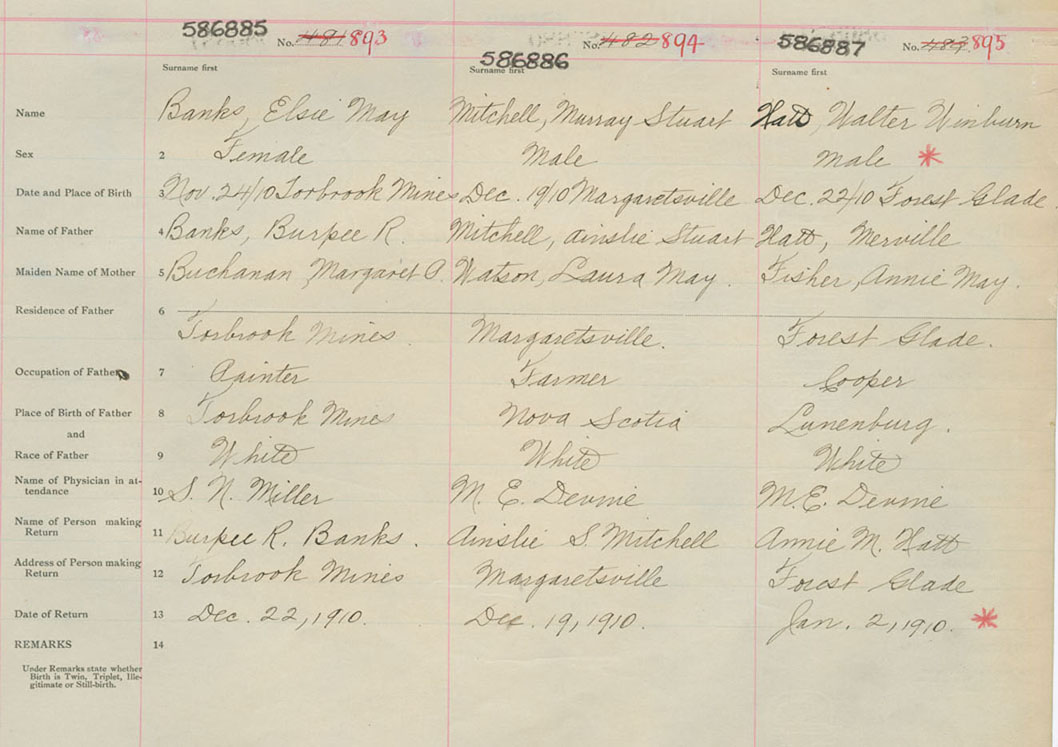 586885 No. 481 893 586886 No. 482 894 586887 No. 483 895
Surname first Surname first Surname first
Name Banks, Elsie May Mitchell, Murray Stuart Hatt, Walter Winburn
Sex 2 Female Male Male *
Date and Place of Birth 3 Nov. 24/10 Torbrook Mines Dec. 19/10 Margaretsville Dec. 22/10 Forest Glade.
Name of Father 4 Banks, Burpee R. Mitchell, Ainslie Stuart Hatt, Merville
Maiden Name of Mother 5 Buchanan, Margaret A. Watson, Laura May. Fisher, Annie May.
Residence of Father 6
Torbrook Mines. Margaretsville. Forest Glade.
Occupation of Father 7 Painter Farmer Cooper
Place of Birth of Father 8 Torbrook Mines Nova Scotia Lunenburg.
and
Race of Father 9 White White White
Name of Physician in at-
tendance 10 S. N. Miller M. E. Devine M. E. Devine
Name of Person making
Return 11 Burpee R. Banks. Ainslie S. Mitchell Annie M. Hatt
Address of Person making
Return 12 Torbrook Mines Margaretsville Forest Glade
Date of Return 13 Dec. 22, 1910. Dec. 19, 1910. Jan. 2, 1910. *
REMARKS 14
Under Remarks state whether
Birth is Twin, Triplet, Ille-
gitimate or Still-birth.